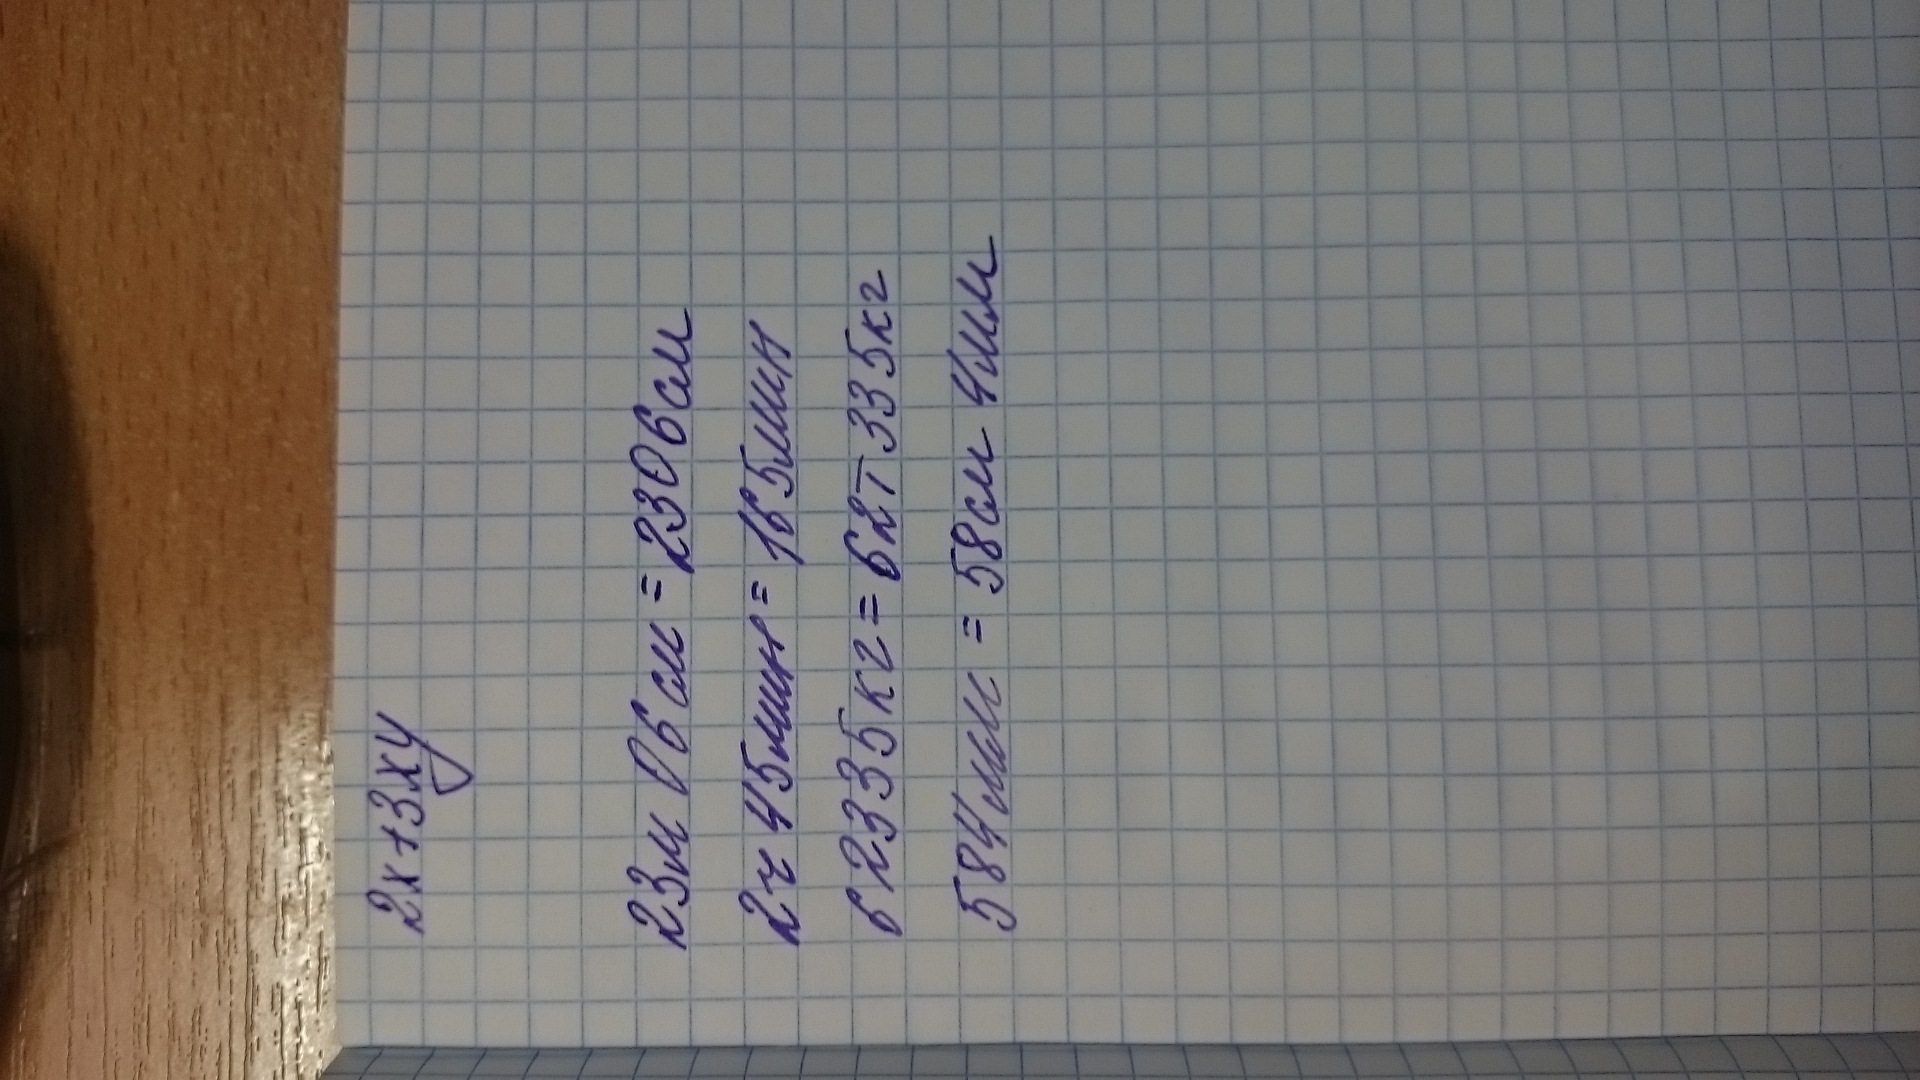 2x+3xy
23м 06см = 2306см
2ч 45мин = 165мин
62335кг = 62т 335кг
584мм = 58см 4мм